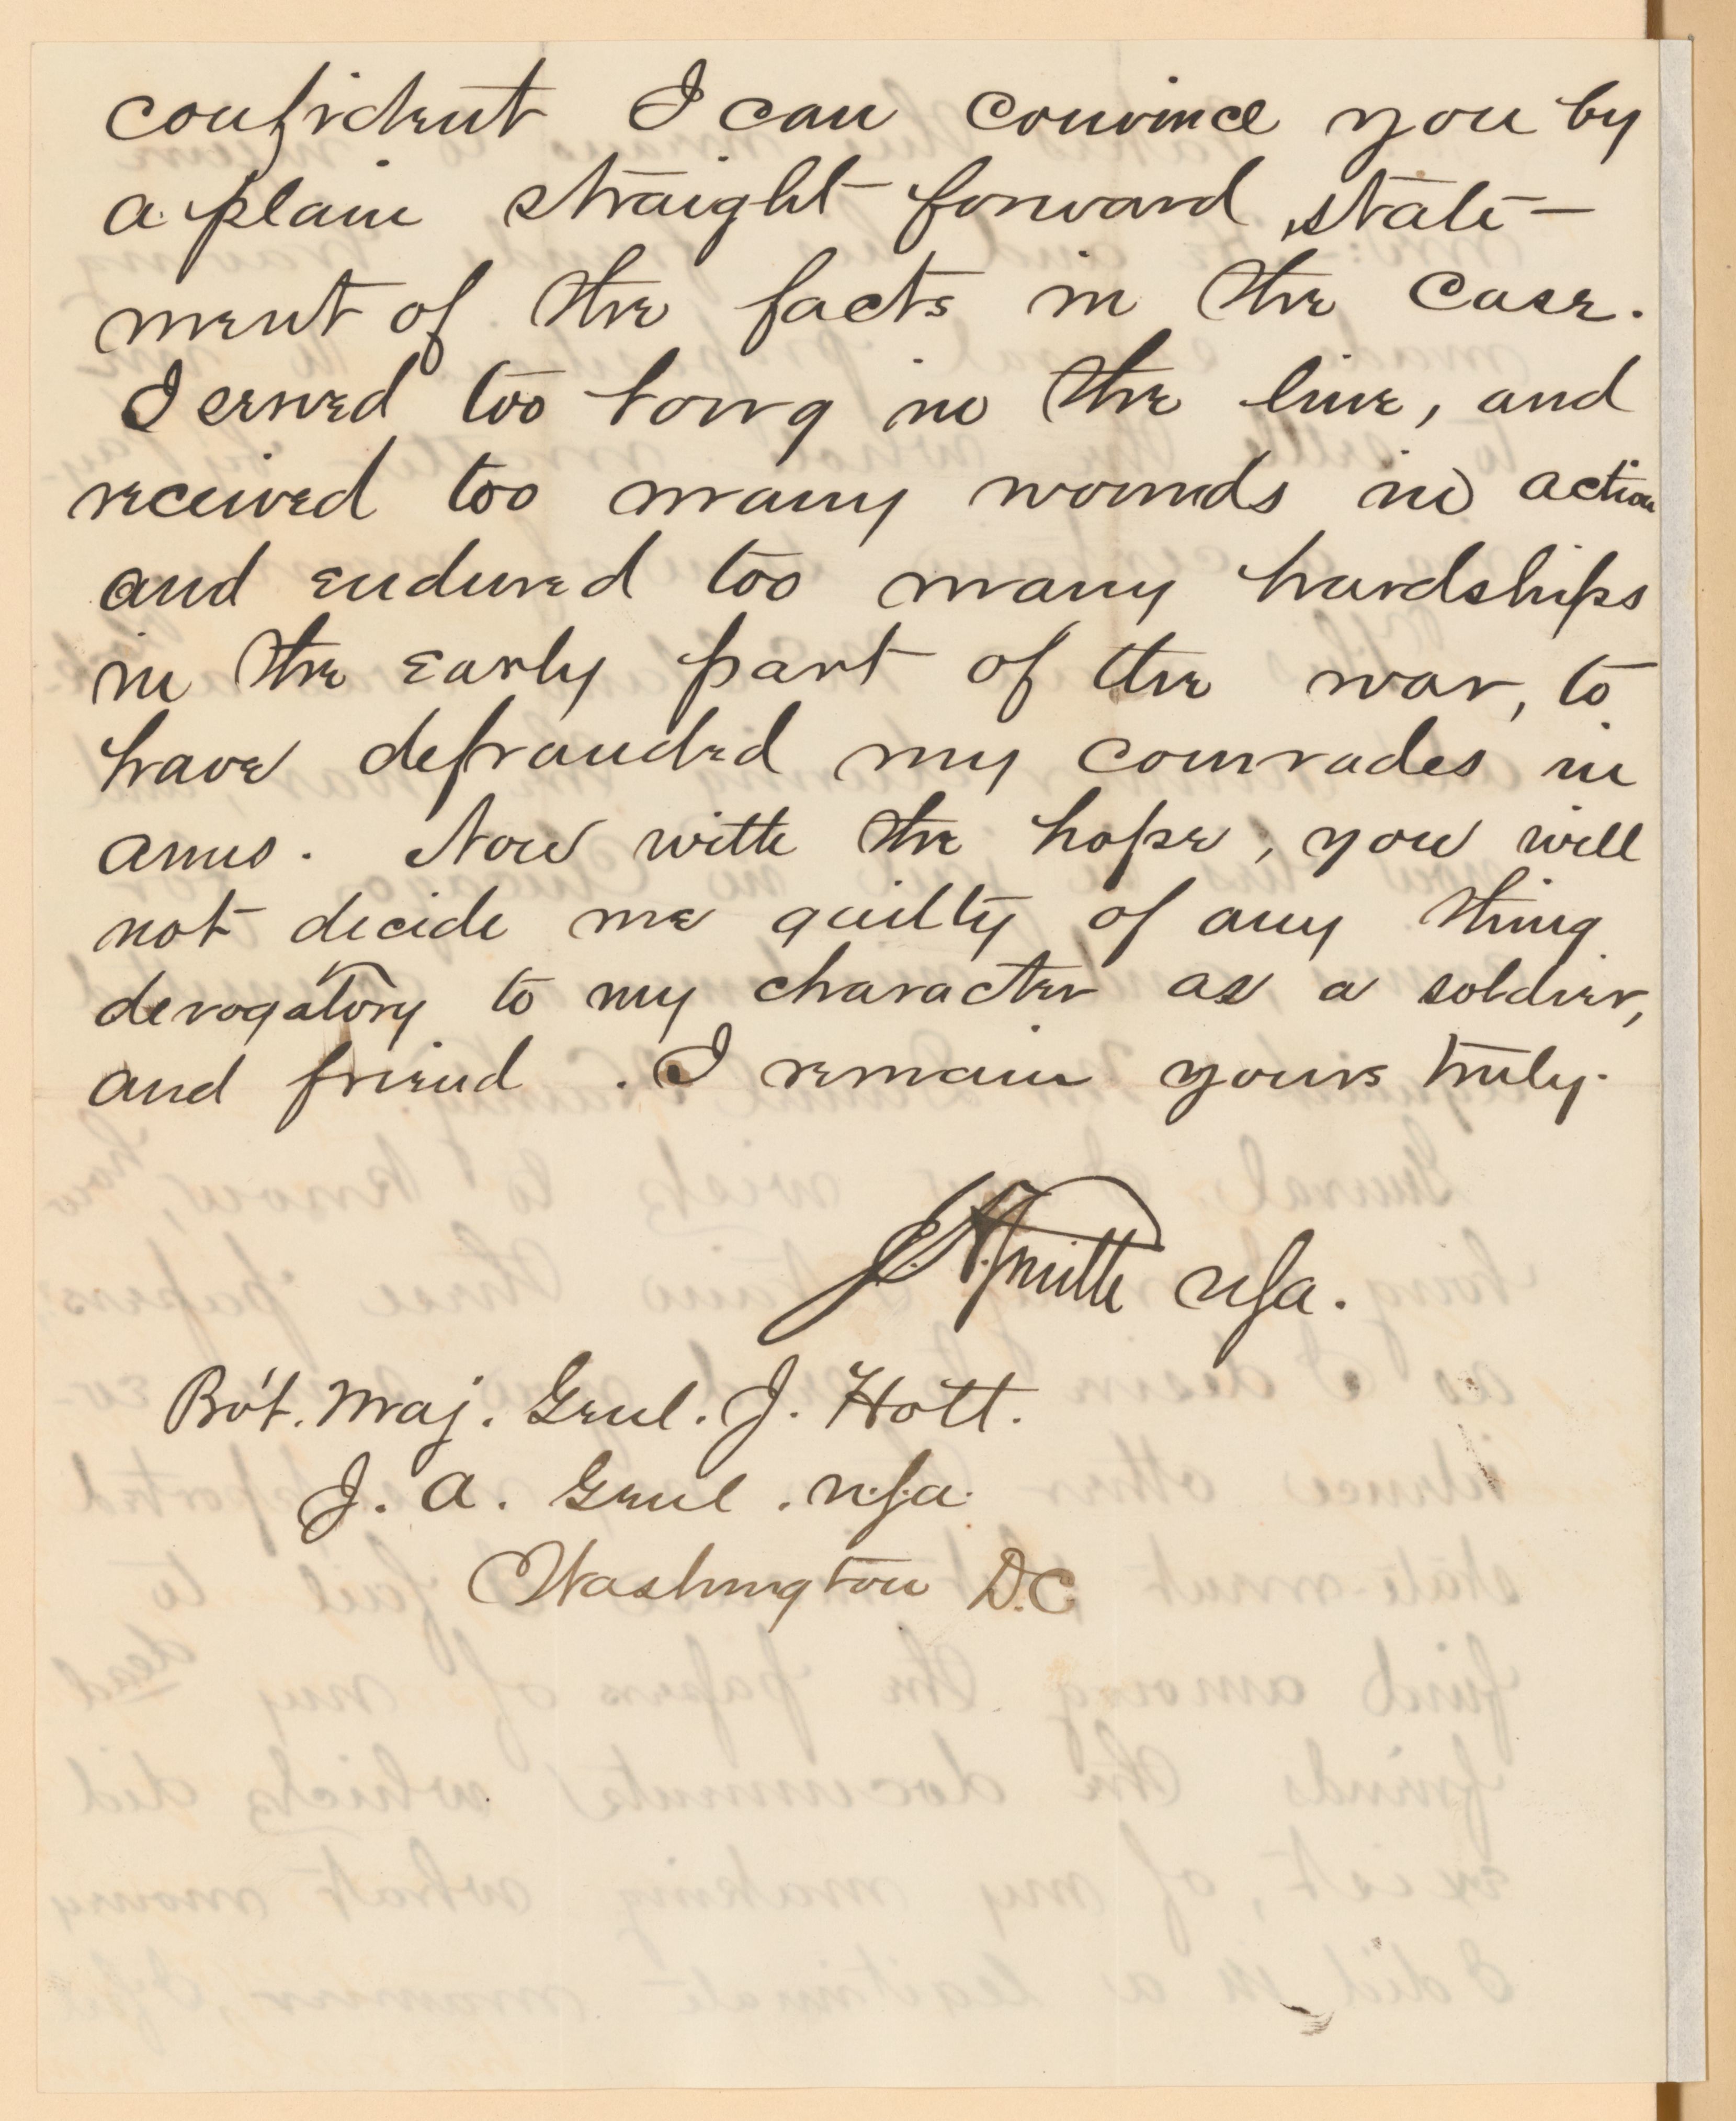 confident I can convince you by
a plain straight forward state-
ment of the facts in the case.
I served too long in the line, and
received too many wounds in action
and endured too many hardships
in the early part of the war, to
have defrauded my comrades in
arms. Now with the hope, you will
not decide me guilty of any thing
derogatory to my character as a soldier,
and friend. I remain yours truly.
Smith USA.
Bv't. Maj. Genl. J. Holt.
J. A. Genl. U.S.A.
Washington D.C.